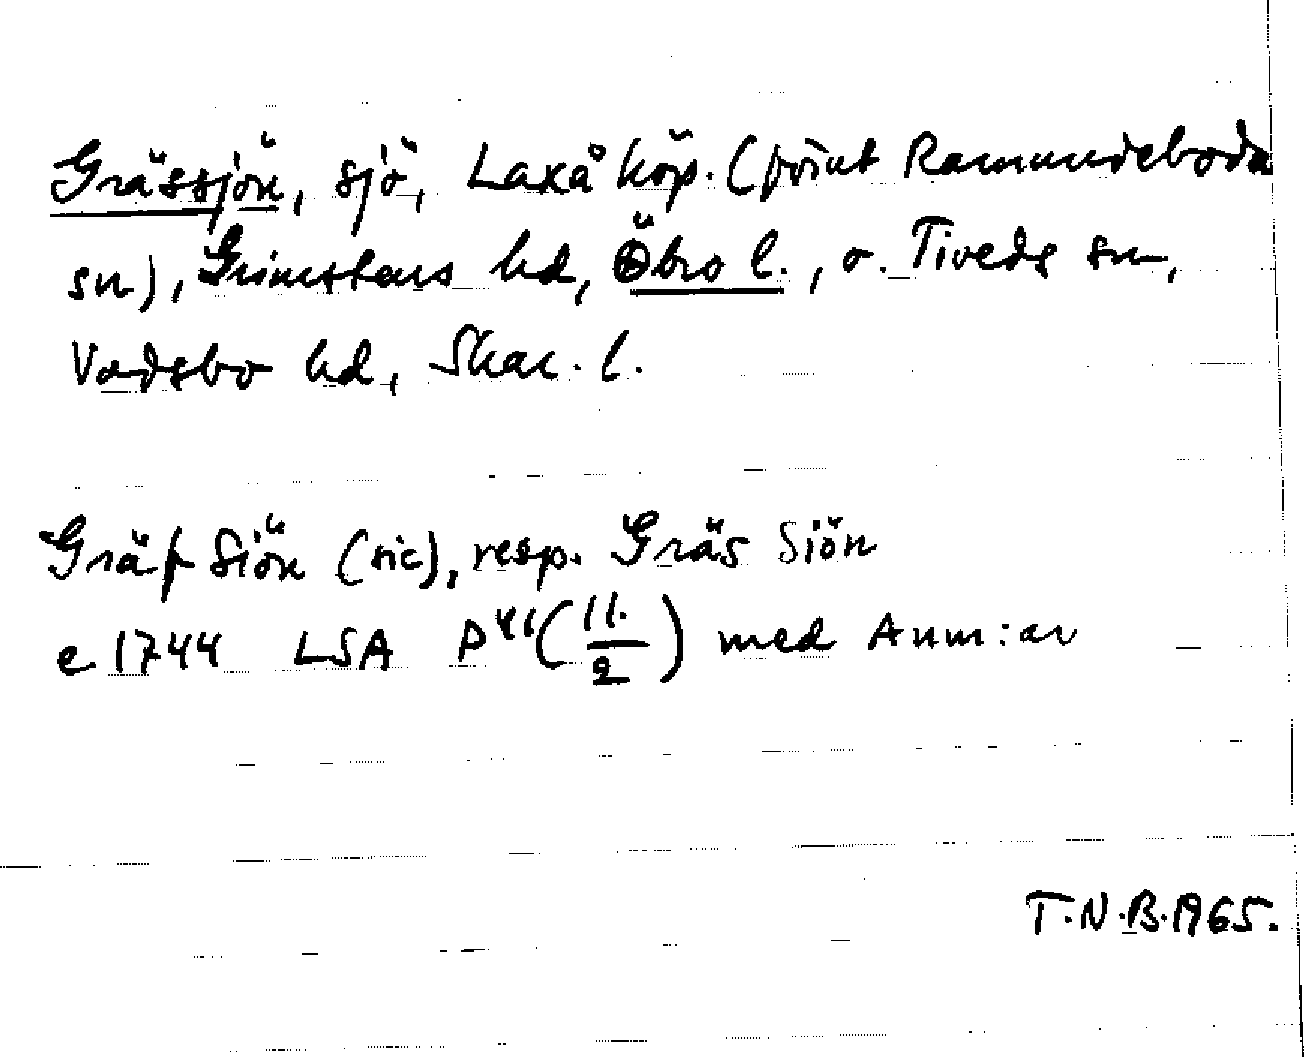 Grässjön, sjö, Laxå köp. (förut Ramundeboda
sn), Grimstens hd, Öbro l., o. Tiveds sn,
Vadsbo hd, Skar. l.
Gräf Siön (sic), resp. Gräs Siön
e. 1744 LSA P 41 (11/2) med Anm:ar
T.N.B. 1965.